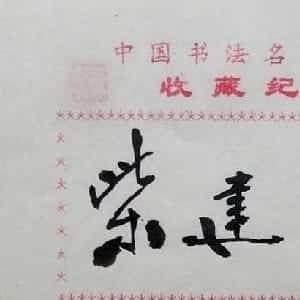 中国书法名
收藏纪
柴建